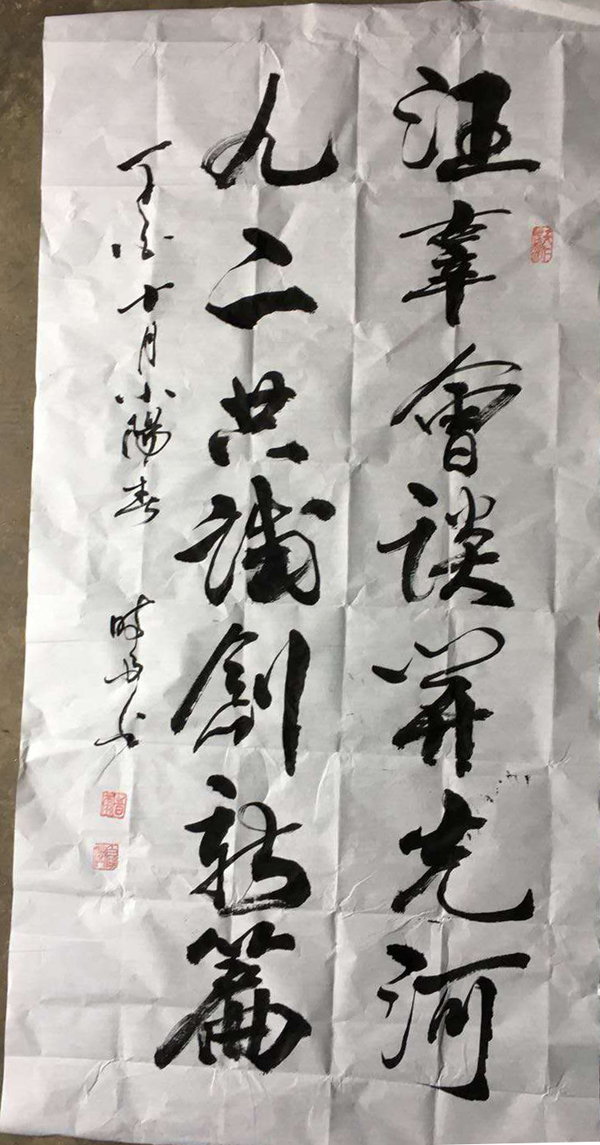 汪辜會談開先河
九二共識創新篇
丁酉十月小陽春 時